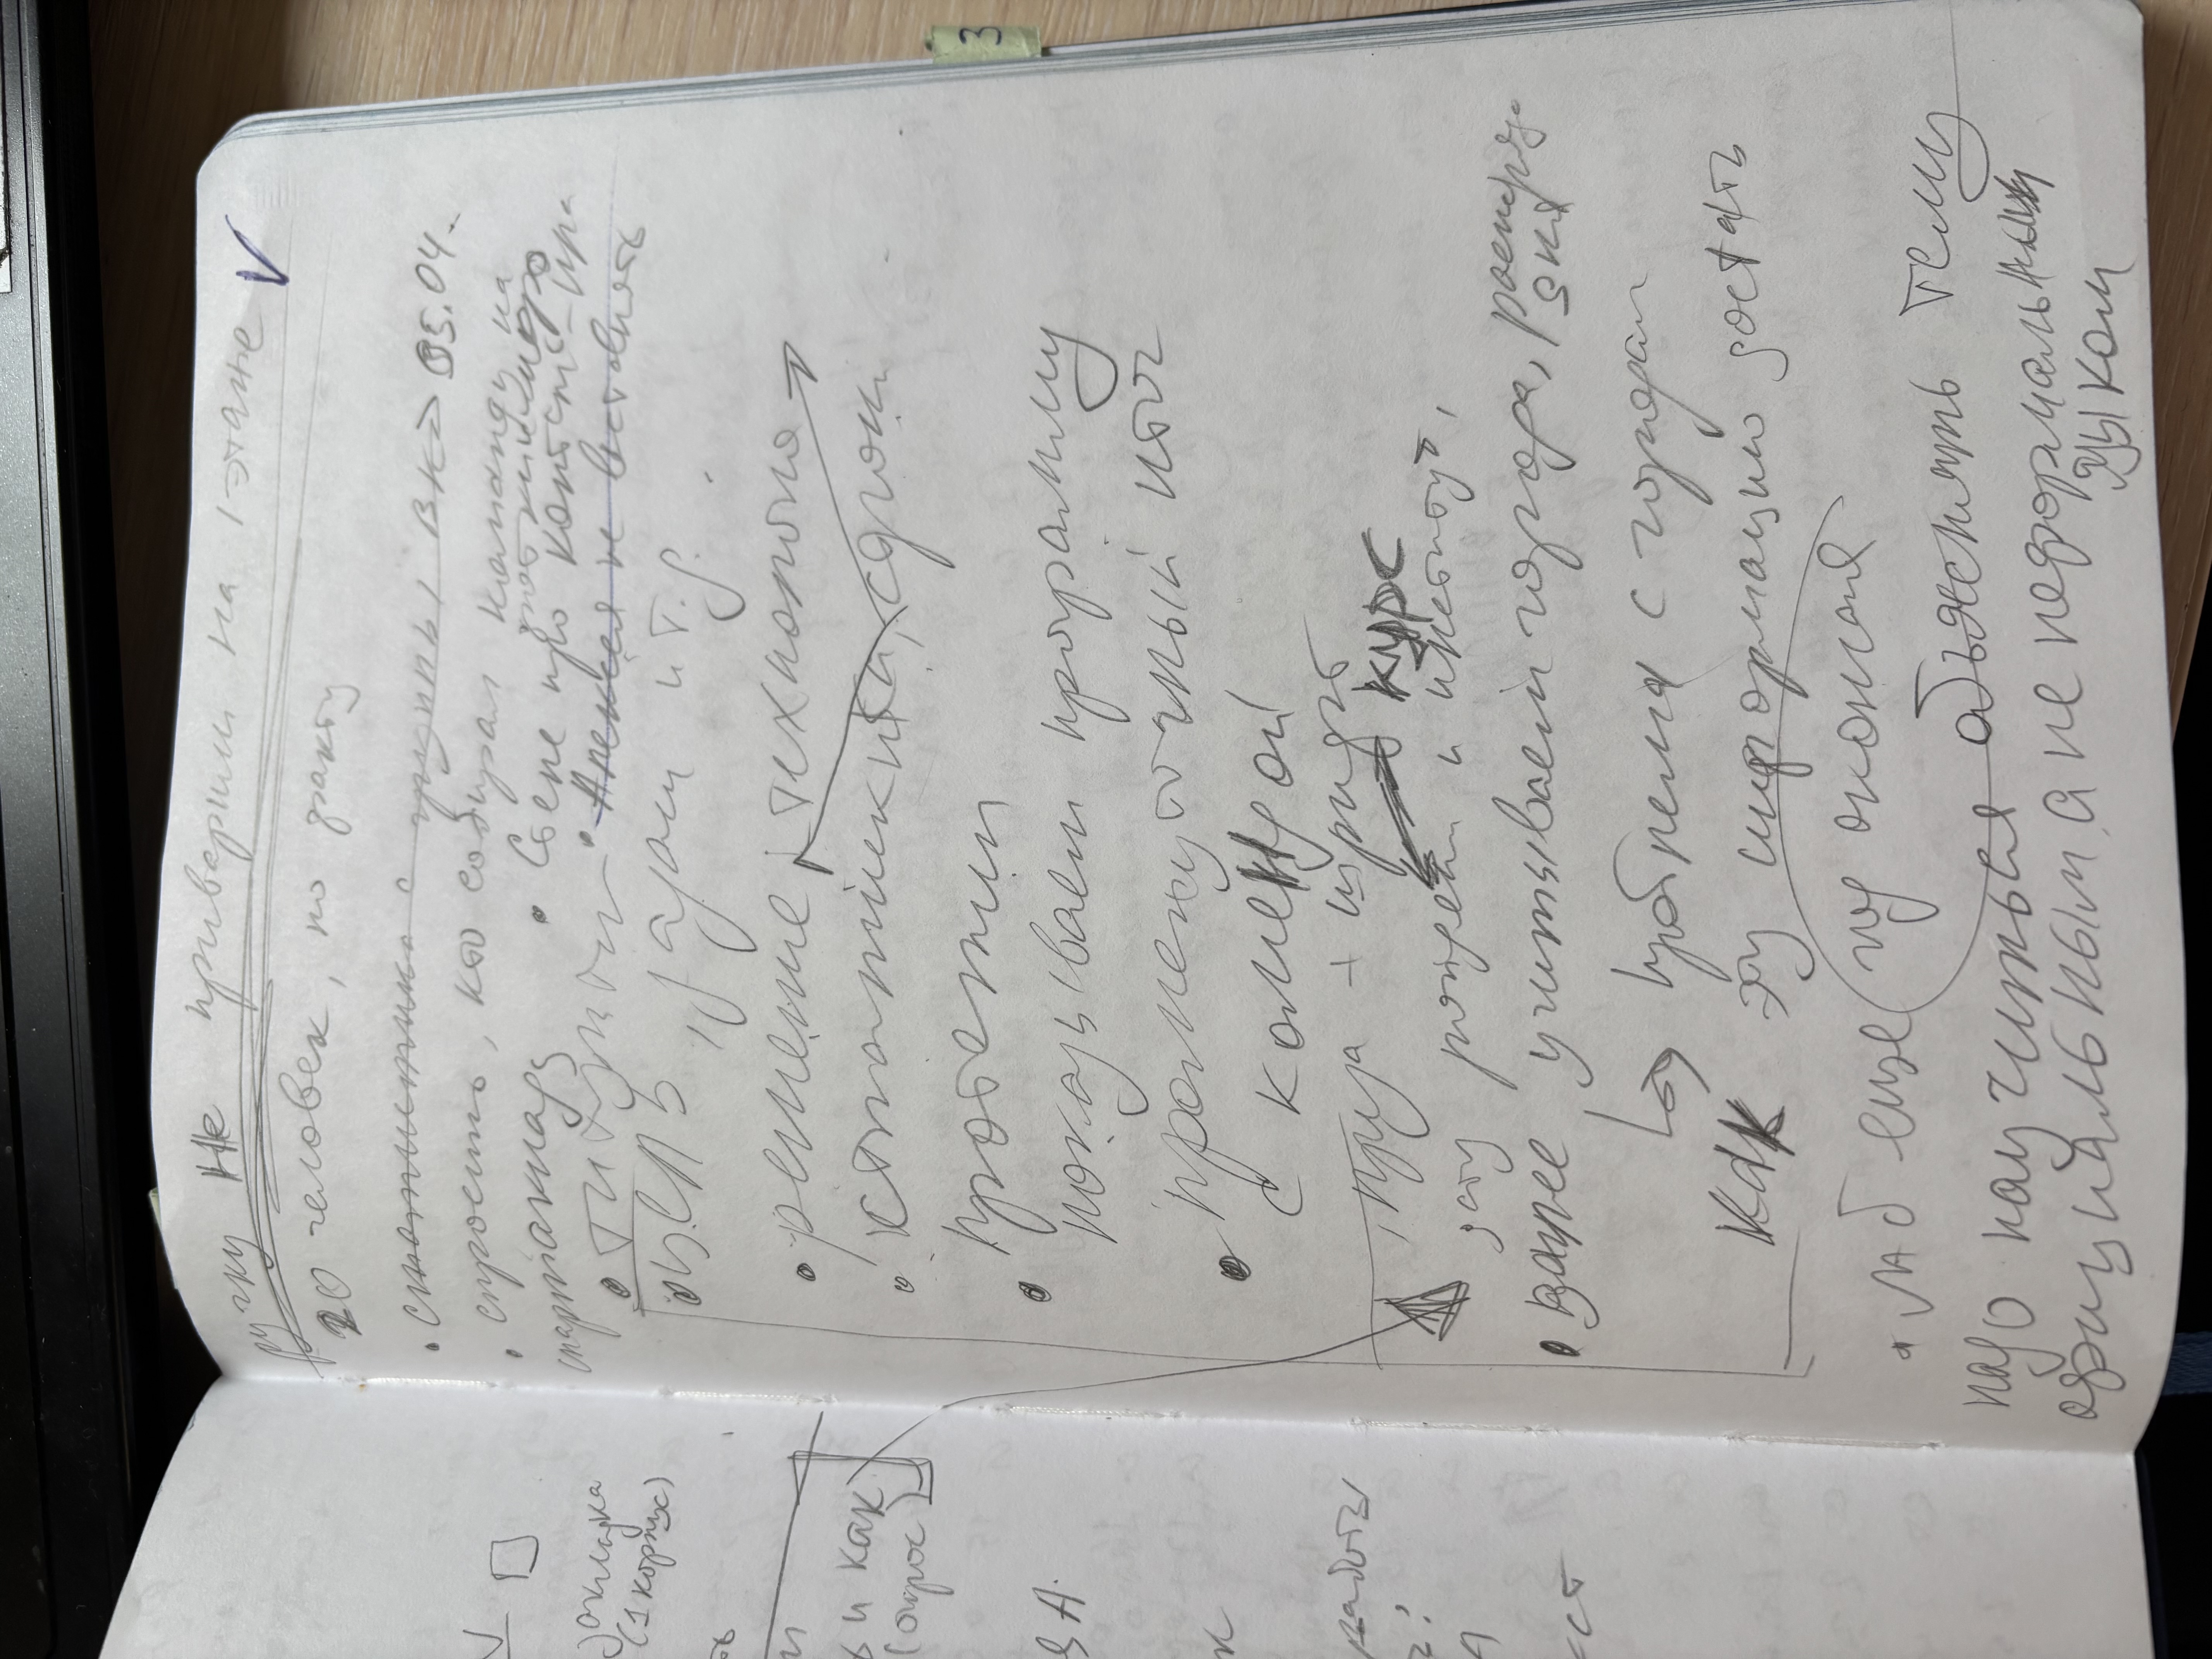 закладка
(1 корпус)
и как
(опрос)
А.
к
работы
ручку не приварили на 1 этаже
20 человек, по факту
• статистика с группы ВК 05.04.
• спросить, кто собирал команду на
спартакиаду
• Степе про
• Алексея не вставлять
• титульник
• цель, задачи и т.д.
• решение, технология
• статистика, сроки
проблемы
• показываем программу
промежуточный итог
• с командой
шрифт
курс
дату рождения и институт,
• учитываем города,
проблема с городами
как эту информацию достать
• мб еще год окончания
надо научиться объяснять тему
официальным а не неформальным
языком
3